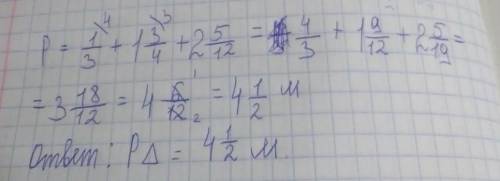 P = 1/3 + 1 3/4 + 2 5/12 = 4/3 + 1 9/12 + 2 5/19 =
= 3 18/12 = 4 6/12 = 4 1/2 м
Ответ: P△ = 4 1/2 м.